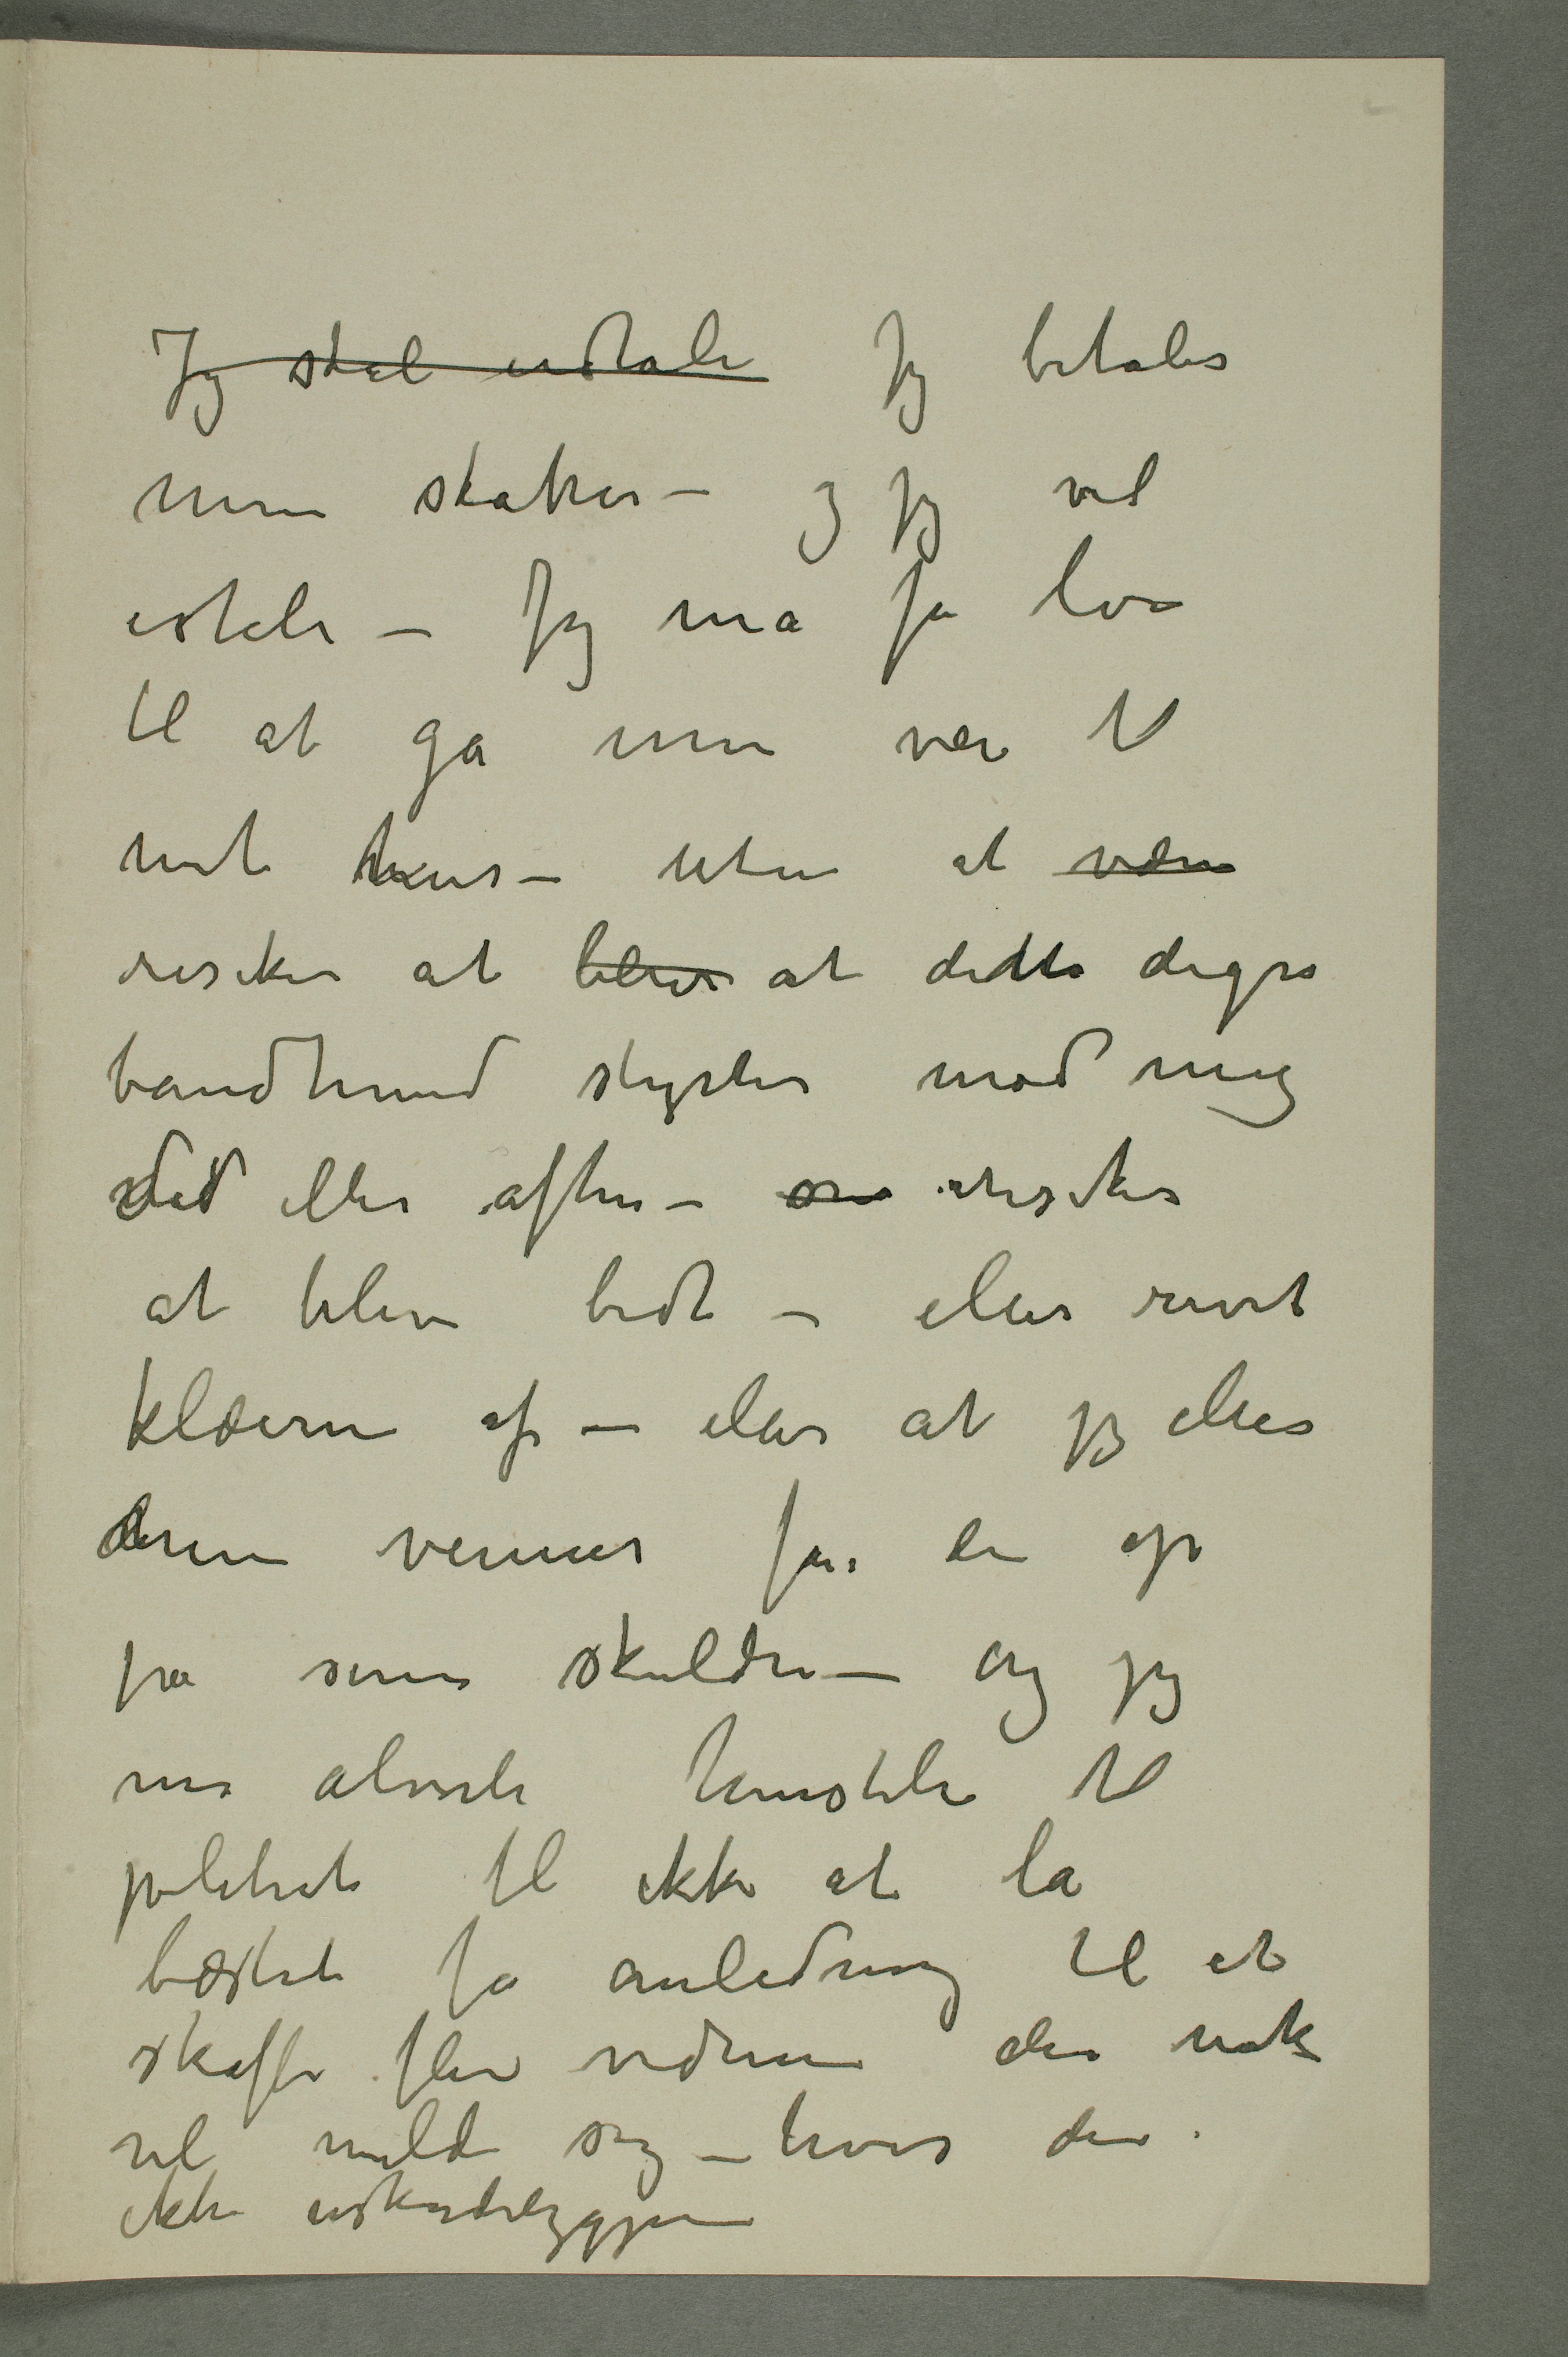 Jeg skal udtale Jeg betaler
mine skatter – og jeg vil
udtale – Jeg må få lov
til at gå mine veie til
mit hus – uten at være
risikere at blive at dette digre
bandhund styrter mod mig
ved eller aften – risikere
at blive bidt – eller revet
klæerne af – eller at jeg eller
mine venner får den op
på sine skuldre – Og jeg
må alvorli henstille til
politiet til ikke at la
bæstet få anledning til at
skaffe flere vidner der nok
vil melde sig – hvis den
ikke uskadeliggjøres